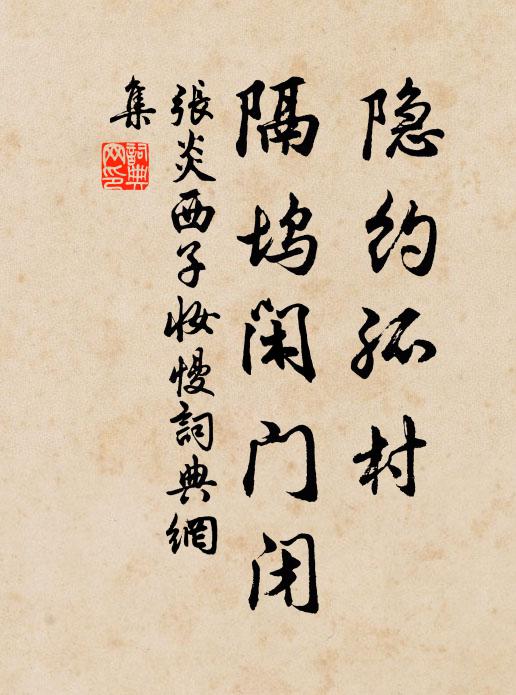 隐约孤村
隔坞闲门闭
張炎西子妝慢詞典網
集
詞典
网印